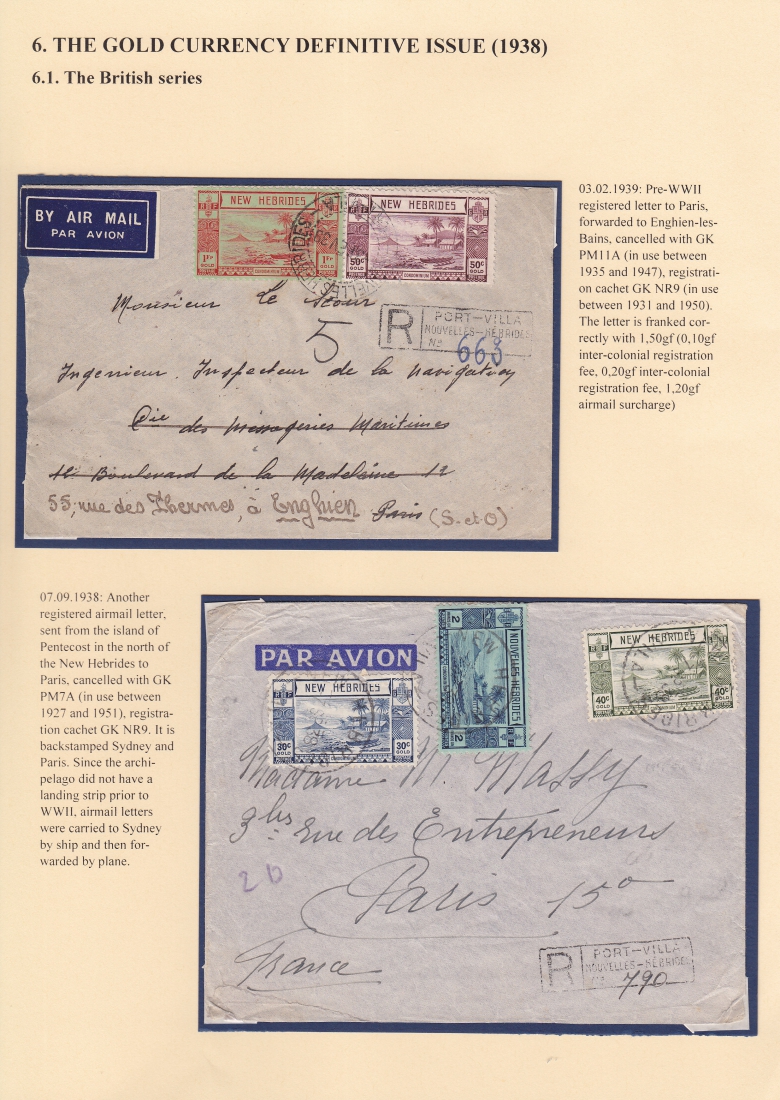 6. THE GOLD CURRENCY DEFINITIVE ISSUE (1938)
6.1. The British series
BY AIR MAIL
PAR AVION
NEW HEBRIDES
RF
1FR
GOLD
1FR
GOLD
CONDOMINIUM
NEW HEBRIDES
RF
50c
GOLD
50c
GOLD
CONDOMINIUM
Monsieur Le Scour
5
R
PORT-VILLA
NOUVELLES-HÉBRIDES
No 663
Ingenieur Inspecteur de la Navigation
Cie des Messageries Maritimes
Boulevard de la Madeleine 12
55, rue des Thermes, à Enghien Paris (S-et-O)
03.02.1939: Pre-WWII
registered letter to Paris,
forwarded to Enghien-les-
Bains, cancelled with GK
PM11A (in use between
1935 and 1947), registrati-
on cachet GK NR9 (in use
between 1931 and 1950).
The letter is franked cor-
rectly with 1,50gf (0,10gf
inter-colonial registration
fee, 0,20gf inter-colonial
registration fee, 1,20gf
airmail surcharge)
07.09.1938: Another
registered airmail letter,
sent from the island of
Pentecost in the north of
the New Hebrides to
Paris, cancelled with GK
PM7A (in use between
1927 and 1951), registra-
tion cachet GK NR9. It is
backstamped Sydney and
Paris. Since the archi-
pelago did not have a
landing strip prior to
WWII, airmail letters
were carried to Sydney
by ship and then for-
warded by plane.
PAR AVION
NEW HEBRIDES
RF
30c
GOLD
30c
GOLD
NOUVELLES HÉBRIDES
2
2
NEW HEBRIDES
RF
40c
GOLD
40c
GOLD
Madame M. Massy
3 bis Rue des Entrepreneurs
20
Paris 15º
France
R
PORT-VILLA
NOUVELLES-HÉBRIDES
No 790